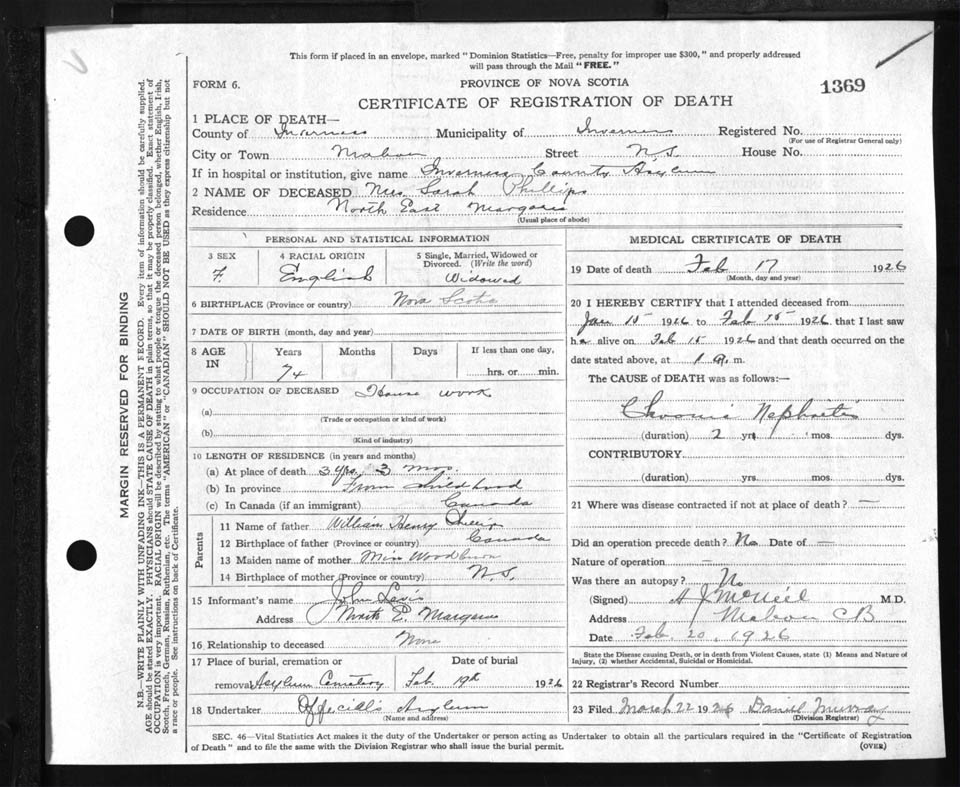 This form if placed in an envelope, marked "Dominion Statistics—Free, penalty for improper use $300," and properly addressed
will pass through the Mail "FREE."
FORM 6.
PROVINCE OF NOVA SCOTIA
1369
CERTIFICATE OF REGISTRATION OF DEATH
1 PLACE OF DEATH—
County of Inverness Municipality of Inverness Registered No.
(For use of Registrar General only)
City or Town Mabou Street N.S. House No.
If in hospital or institution, give name Inverness County Asylum
2 NAME OF DECEASED Mrs Sarah Phillips
Residence North East Margaree
(Usual place of abode)
PERSONAL AND STATISTICAL INFORMATION
3 SEX
F.
4 RACIAL ORIGIN
English
5 Single, Married, Widowed or
Divorced. (Write the word)
Widowed
6 BIRTHPLACE (Province or country) Nova Scotia
7 DATE OF BIRTH (month, day and year)
8 AGE
IN
Years Months Days If less than one day,
74 hrs. or min.
9 OCCUPATION OF DECEASED House work
(a)
(Trade or occupation or kind of work)
(b)
(Kind of industry)
10 LENGTH OF RESIDENCE (in years and months)
(a) At place of death 3 yrs. 3 mos.
(b) In province From childhood
(c) In Canada (if an immigrant) Canada
Parents
11 Name of father William Henry Phillips
12 Birthplace of father (Province or country) Canada
13 Maiden name of mother Miss
14 Birthplace of mother (Province or country) N.S.
15 Informant's name John
Address North E. Margaree
16 Relationship to deceased None
17 Place of burial, cremation or Date of burial
removal Asylum Cemetery Feb. 19th 1926
18 Undertaker Officials Asylum
(Name and address)
MEDICAL CERTIFICATE OF DEATH
19 Date of death Feb 17 1926
(Month, day and year)
20 I HEREBY CERTIFY that I attended deceased from
Jan 15 1926 to Feb 15 1926 that I last saw
her alive on Feb 15 1926 and that death occurred on the
date stated above, at 1 a. m.
The CAUSE OF DEATH was as follows:—
Chronic Nephritis
(duration) 2 yrs. mos. dys.
CONTRIBUTORY
(duration) yrs. mos. dys.
21 Where was disease contracted if not at place of death? —
Did an operation precede death? No Date of —
Nature of operation —
Was there an autopsy? No
(Signed) A J McNeil M.D.
Address Mabou CB
Date Feb. 20, 1926
State the Disease causing Death, or in death from Violent Causes, state (1) Means and Nature of
Injury, (2) whether Accidental, Suicidal or Homicidal.
22 Registrar's Record Number
23 Filed March 22 1926 Daniel Murray
(Division Registrar)
SEC. 46—Vital Statistics Act makes it the duty of the Undertaker or person acting as Undertaker to obtain all the particulars required in the "Certificate of Registration
of Death" and to file the same with the Division Registrar who shall issue the burial permit.
(OVER)
MARGIN RESERVED FOR BINDING
N.B.—WRITE PLAINLY WITH UNFADING INK—THIS IS A PERMANENT RECORD. Every item of information should be carefully supplied.
AGE should be stated EXACTLY. PHYSICIANS should STATE CAUSE OF DEATH in plain terms, so that it may be properly classified. Exact statement of
OCCUPATION is very important. RACIAL ORIGIN will be described by stating to what people or tongue the deceased person belonged, whether English, Irish,
Scotch, French, German, Russian, Ruthenian, etc. The terms "AMERICAN" or "CANADIAN" SHOULD NOT BE USED as they express citizenship but not
a race or people. See instructions on back of Certificate.